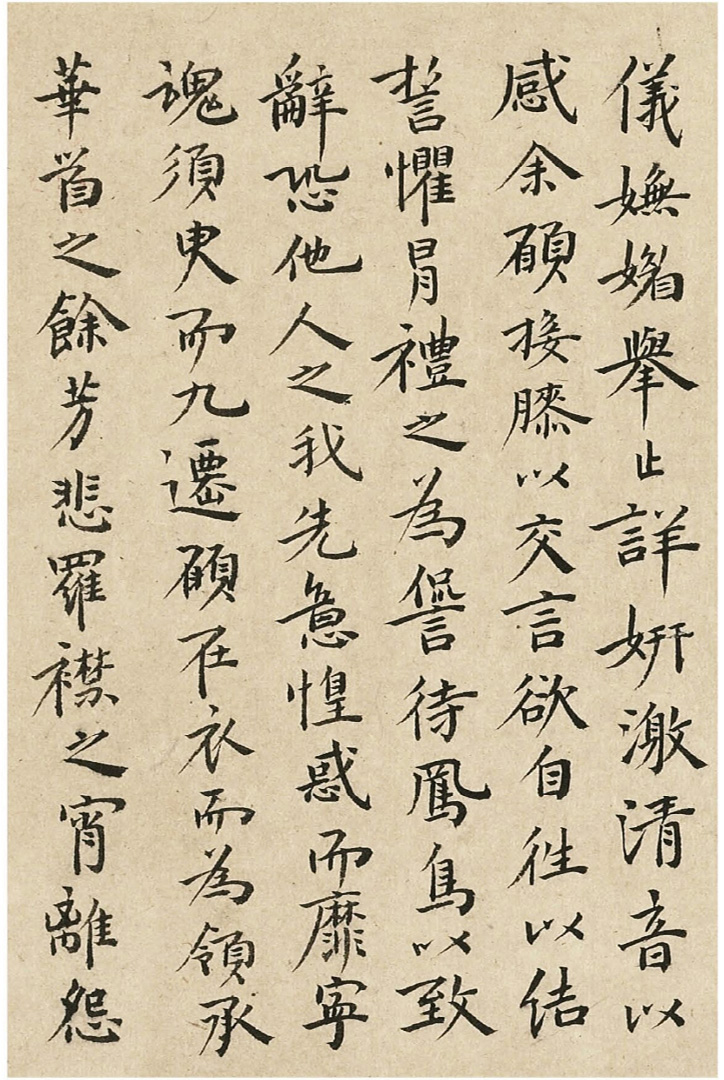 儀嫵媚舉止詳妍激清音以
感余願接膝以交言欲自往以結
誓懼冒禮之為諐待鳳鳥以致
辭恐他人之我先意惶惑而靡寧
魂須臾而九遷願在衣而為領承
華首之餘芳悲羅襟之宵離怨